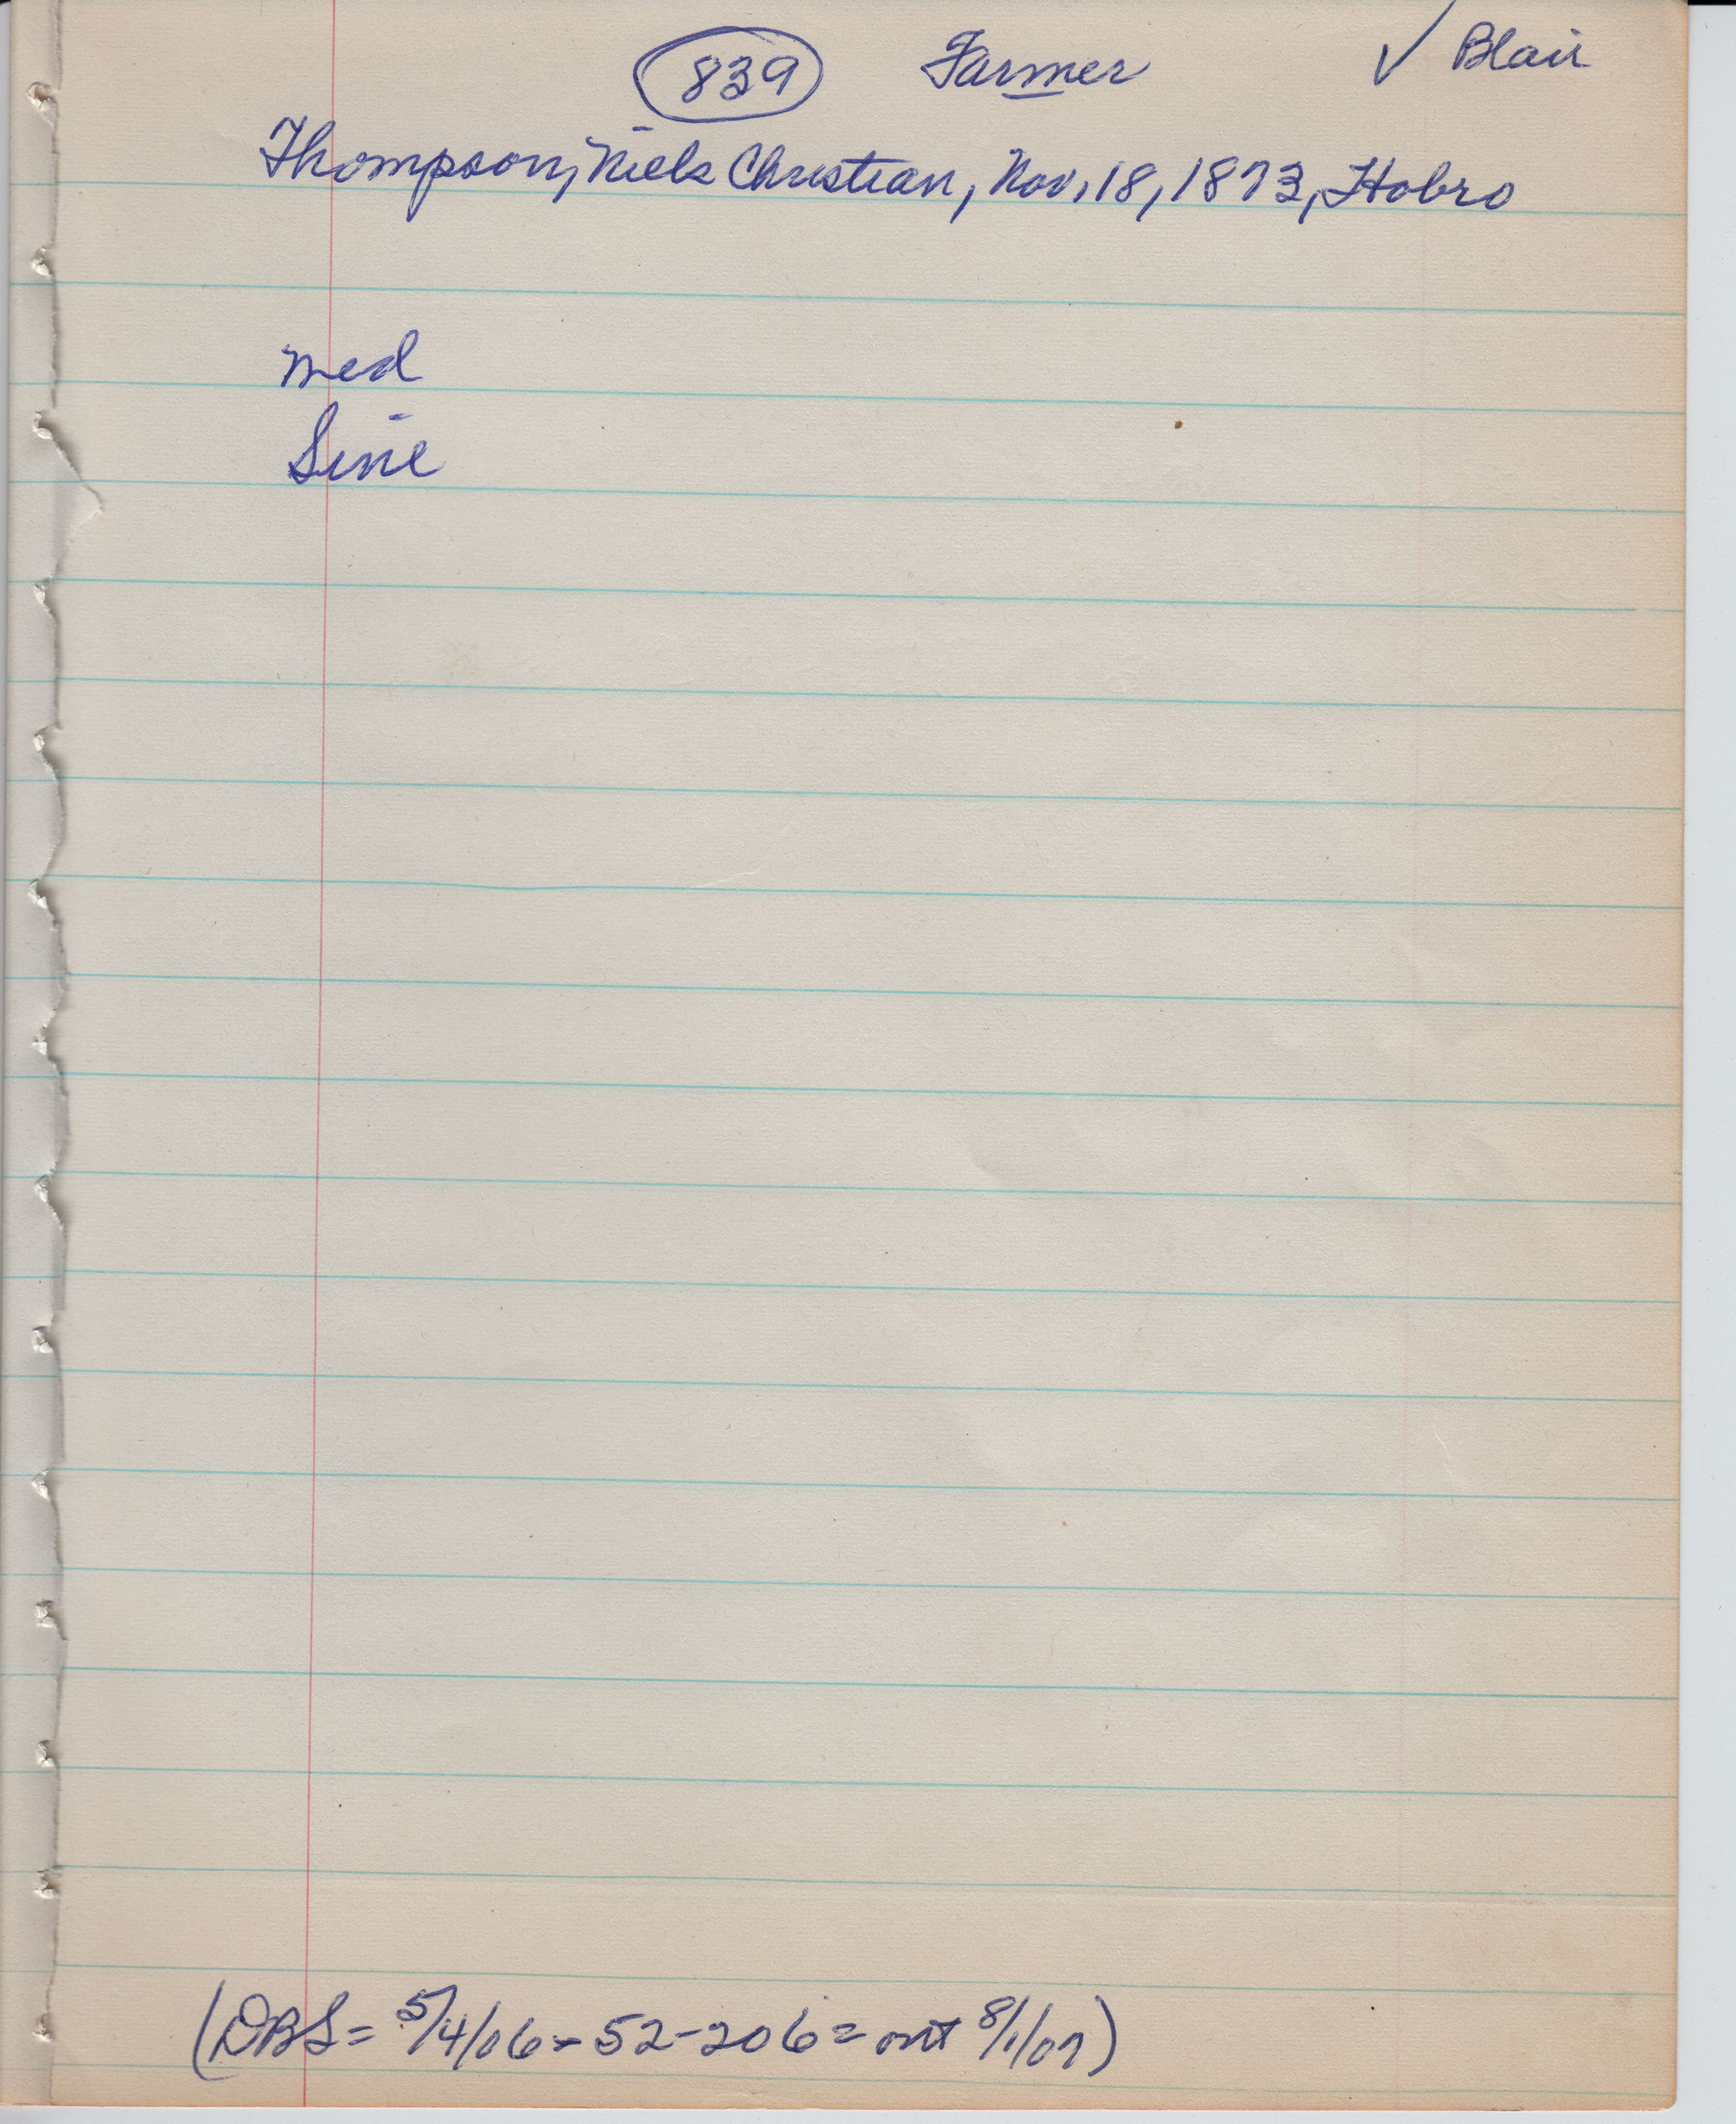 839 Farmer ✓ Blair
Thompson, Niels Christian, Nov. 18, 1873, Hobro
med
Sine
(DBS = 5/4/06 - 52-206 = out 8/1/07)